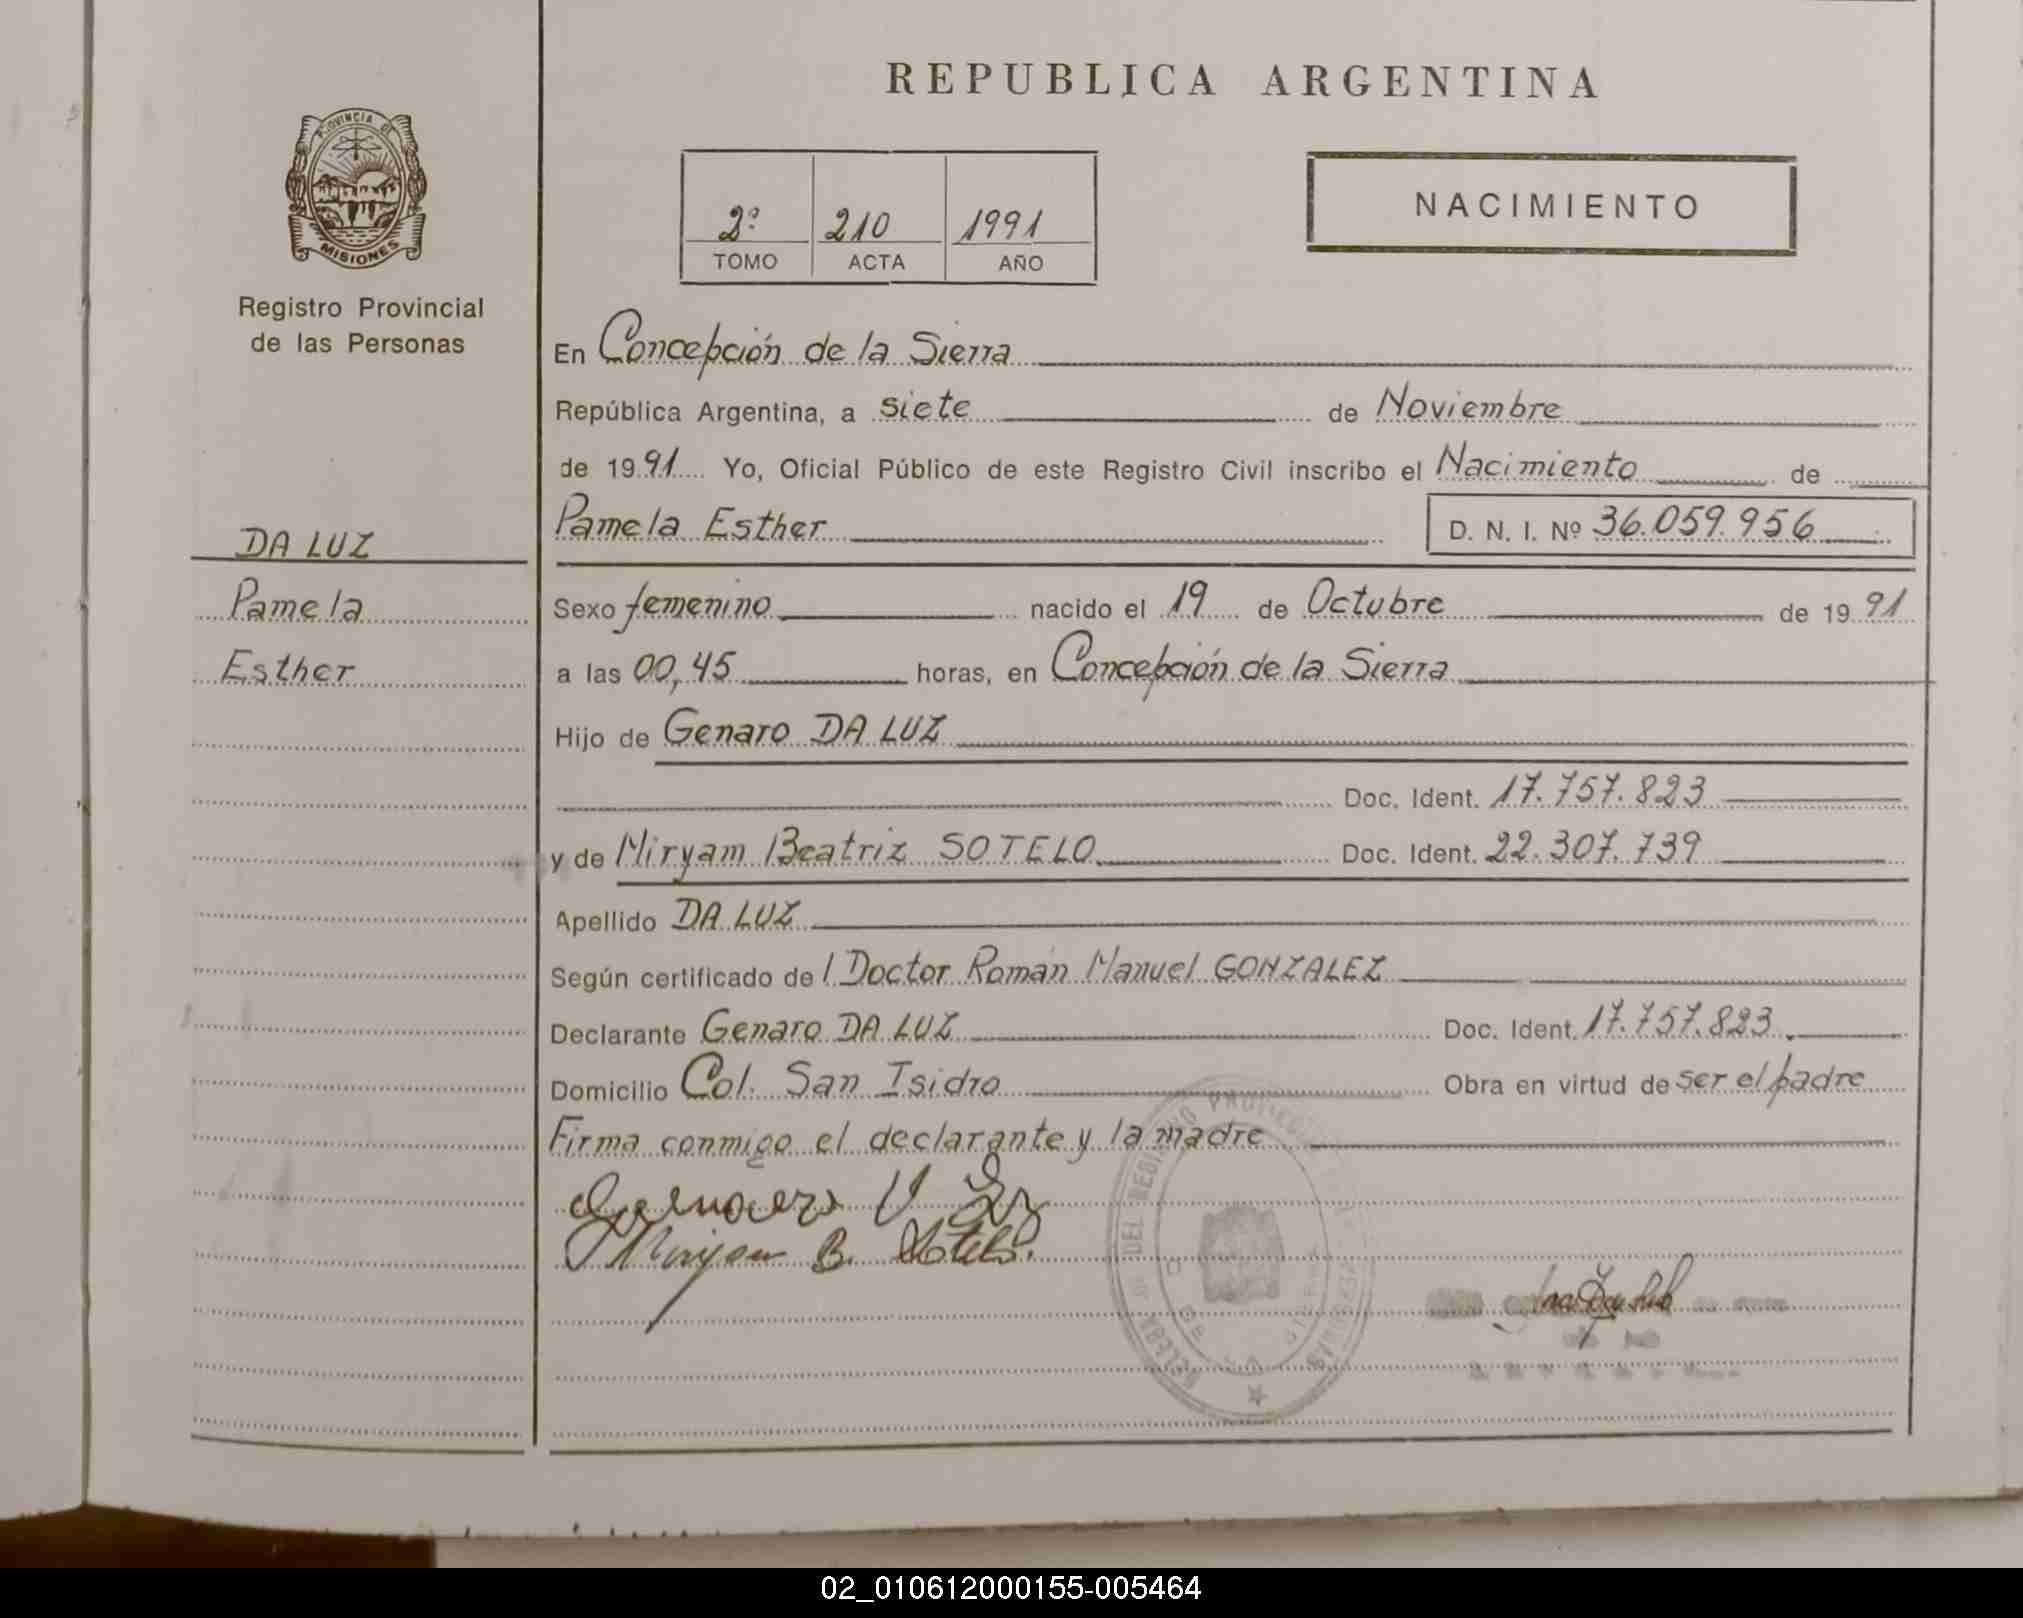 REPUBLICA ARGENTINA
PROVINCIA DE
MISIONES
Registro Provincial
de las Personas
2º 210 1991
TOMO ACTA AÑO
NACIMIENTO
DA LUZ
Pamela
Esther
En Concepción de la Sierra
República Argentina, a siete de Noviembre
de 1991 Yo, Oficial Público de este Registro Civil inscribo el Nacimiento de
Pamela Esther D. N. I. Nº 36.059.956
Sexo femenino nacido el 19 de Octubre de 1991
a las 00,45 horas, en Concepción de la Sierra
Hijo de Genaro DA LUZ
Doc. Ident. 17.757.823
y de Miryam Beatriz SOTELO Doc. Ident. 22.307.739
Apellido DA LUZ
Según certificado de l Doctor Román Manuel GONZALEZ
Declarante Genaro DA LUZ Doc. Ident. 17.757.823
Domicilio Col. San Isidro Obra en virtud de ser el padre
Firma conmigo el declarante y la madre
Miryam B. Sotelo.
DEL REGISTRO
02_010612000155-005464